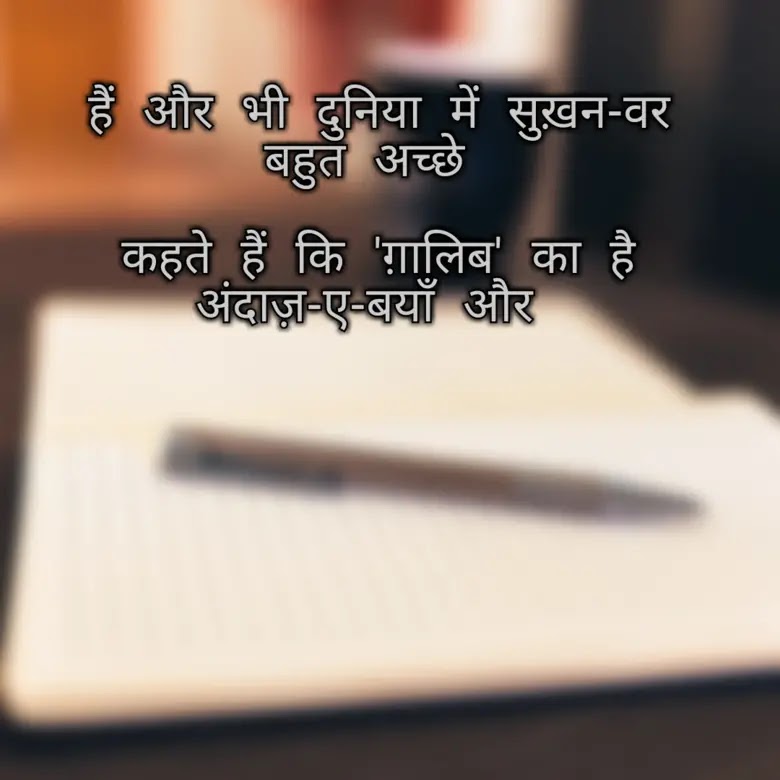 हैं और भी दुनिया में सुख़न-वर
बहुत अच्छे
कहते हैं कि 'ग़ालिब' का है
अंदाज़-ए-बयाँ और